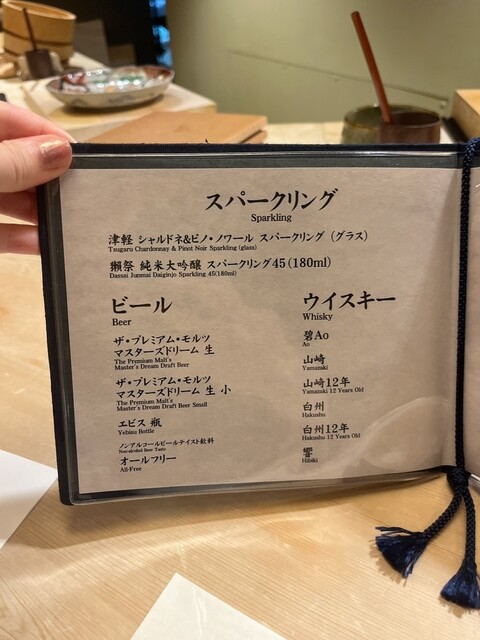 スパークリング
Sparkling
津軽 シャルドネ&ピノ・ノワール スパークリング (グラス)
Tsugaru Chardonnay & Pinot Noir Sparkling (glass)
獺祭 純米大吟醸 スパークリング45(180ml)
Dassai Junmai Daiginjo Sparkling 45(180ml)
ビール
Beer
ザ・プレミアム・モルツ
マスターズドリーム 生
The Premium Malt's
Master's Dream Draft Beer
ザ・プレミアム・モルツ
マスターズドリーム 生 小
The Premium Malt's
Master's Dream Draft Beer Small
エビス 瓶
Yebisu Bottle
ノンアルコールビールテイスト飲料
Non-alcohol Beer Taste
オールフリー
All-Free
ウイスキー
Whisky
碧Ao
Ao
山崎
Yamazaki
山崎12年
Yamazaki 12 Years Old
白州
Hakushu
白州12年
Hakushu 12 Years Old
響
Hibiki